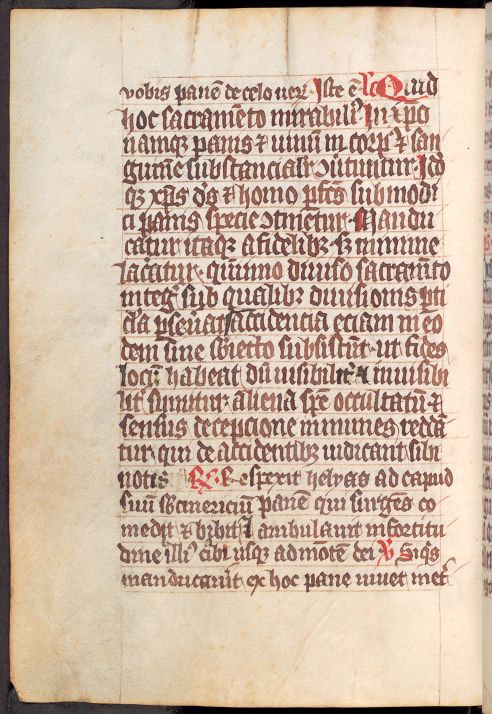 vobis panē de celo verū Iste ē Lc Quid
hoc sacramēto mirabiliꝰ In xpo
namqꝫ panis ⁊ vinū in corpꝰ ⁊ san
guinē substancialiter ꝯutuntur Ideo
qꝫ xps dꝰs ⁊ homo pfcs sub modi
ci panis specie ꝯtinetur Mandu
catur itaqꝫ a fidelibꝫ sꝫ minime
lacatur quinno diuiso sacramēto
integꝰ sub qualibꝫ diuisionis pti
cla pseuat accidencia eciam in eo
dem sine sbiecto subsistūt ut fides
locū habeat dū visibilitꝰ ⁊ inuisibi
litꝰ sumitur aliena spē occultatū ⁊
sensus decepcione inmunes reddā
tur qui de accidentibꝫ iudicant sibi
notis R Respexit helyas ad capud
suū sbcinericiū panē qui surgēs co
medit ⁊ bibit Et ambulauit in fortitu
dine illiꝰ cibi usqꝫ ad mōtē dei V Siqͥs
manducauīt ex hoc pane viuet in etꝰ